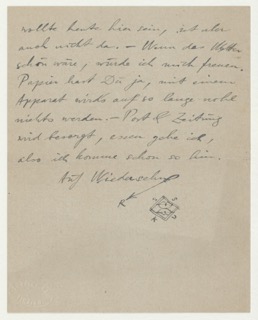 wollte heute hier sein, ist aber
auch nicht da. – Wenn das Wetter
schön wäre, würde ich mich freuen.
Papier hast Du ja, mit einem
Apparat wirds auf so lange wohl
nichts werden. – Post & Zeitung
wird besorgt, essen gehe ich,
also ich komme schon so hin.
Auf Wiedersehn
K